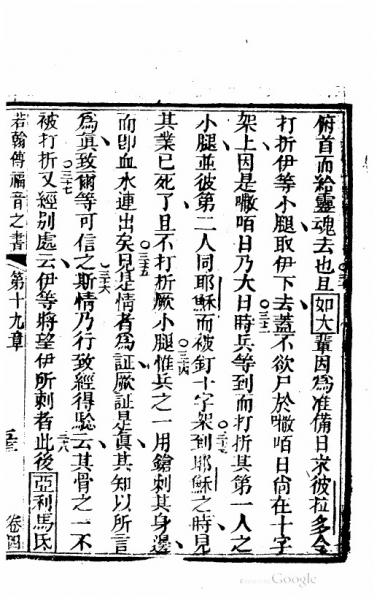 俯首而給靈魂去也且如大輩因為准備日求彼拉多令
打折伊等小腿取伊下去蓋不欲尸於嘞咟日尚在十字
架上因是嘞咟日乃大日時兵等到而打折其第一人之
小腿並彼第二人同耶穌而被釘十字架到耶穌之時見
其業已死了且不打折厥小腿惟兵之一用鎗刺其身邊
而即血水連出矣見是情者為証厥証是真其知以所言
為真致爾等可信之斯情乃行致經得驗云其骨之一不
被打折又經別處云伊等將望伊所刺者此後亞利馬氏
若翰傳福音之書 第十九章 卷四
三十一
三十二
三十三
三十四
三十五
三十六
三十七
三十八
Google